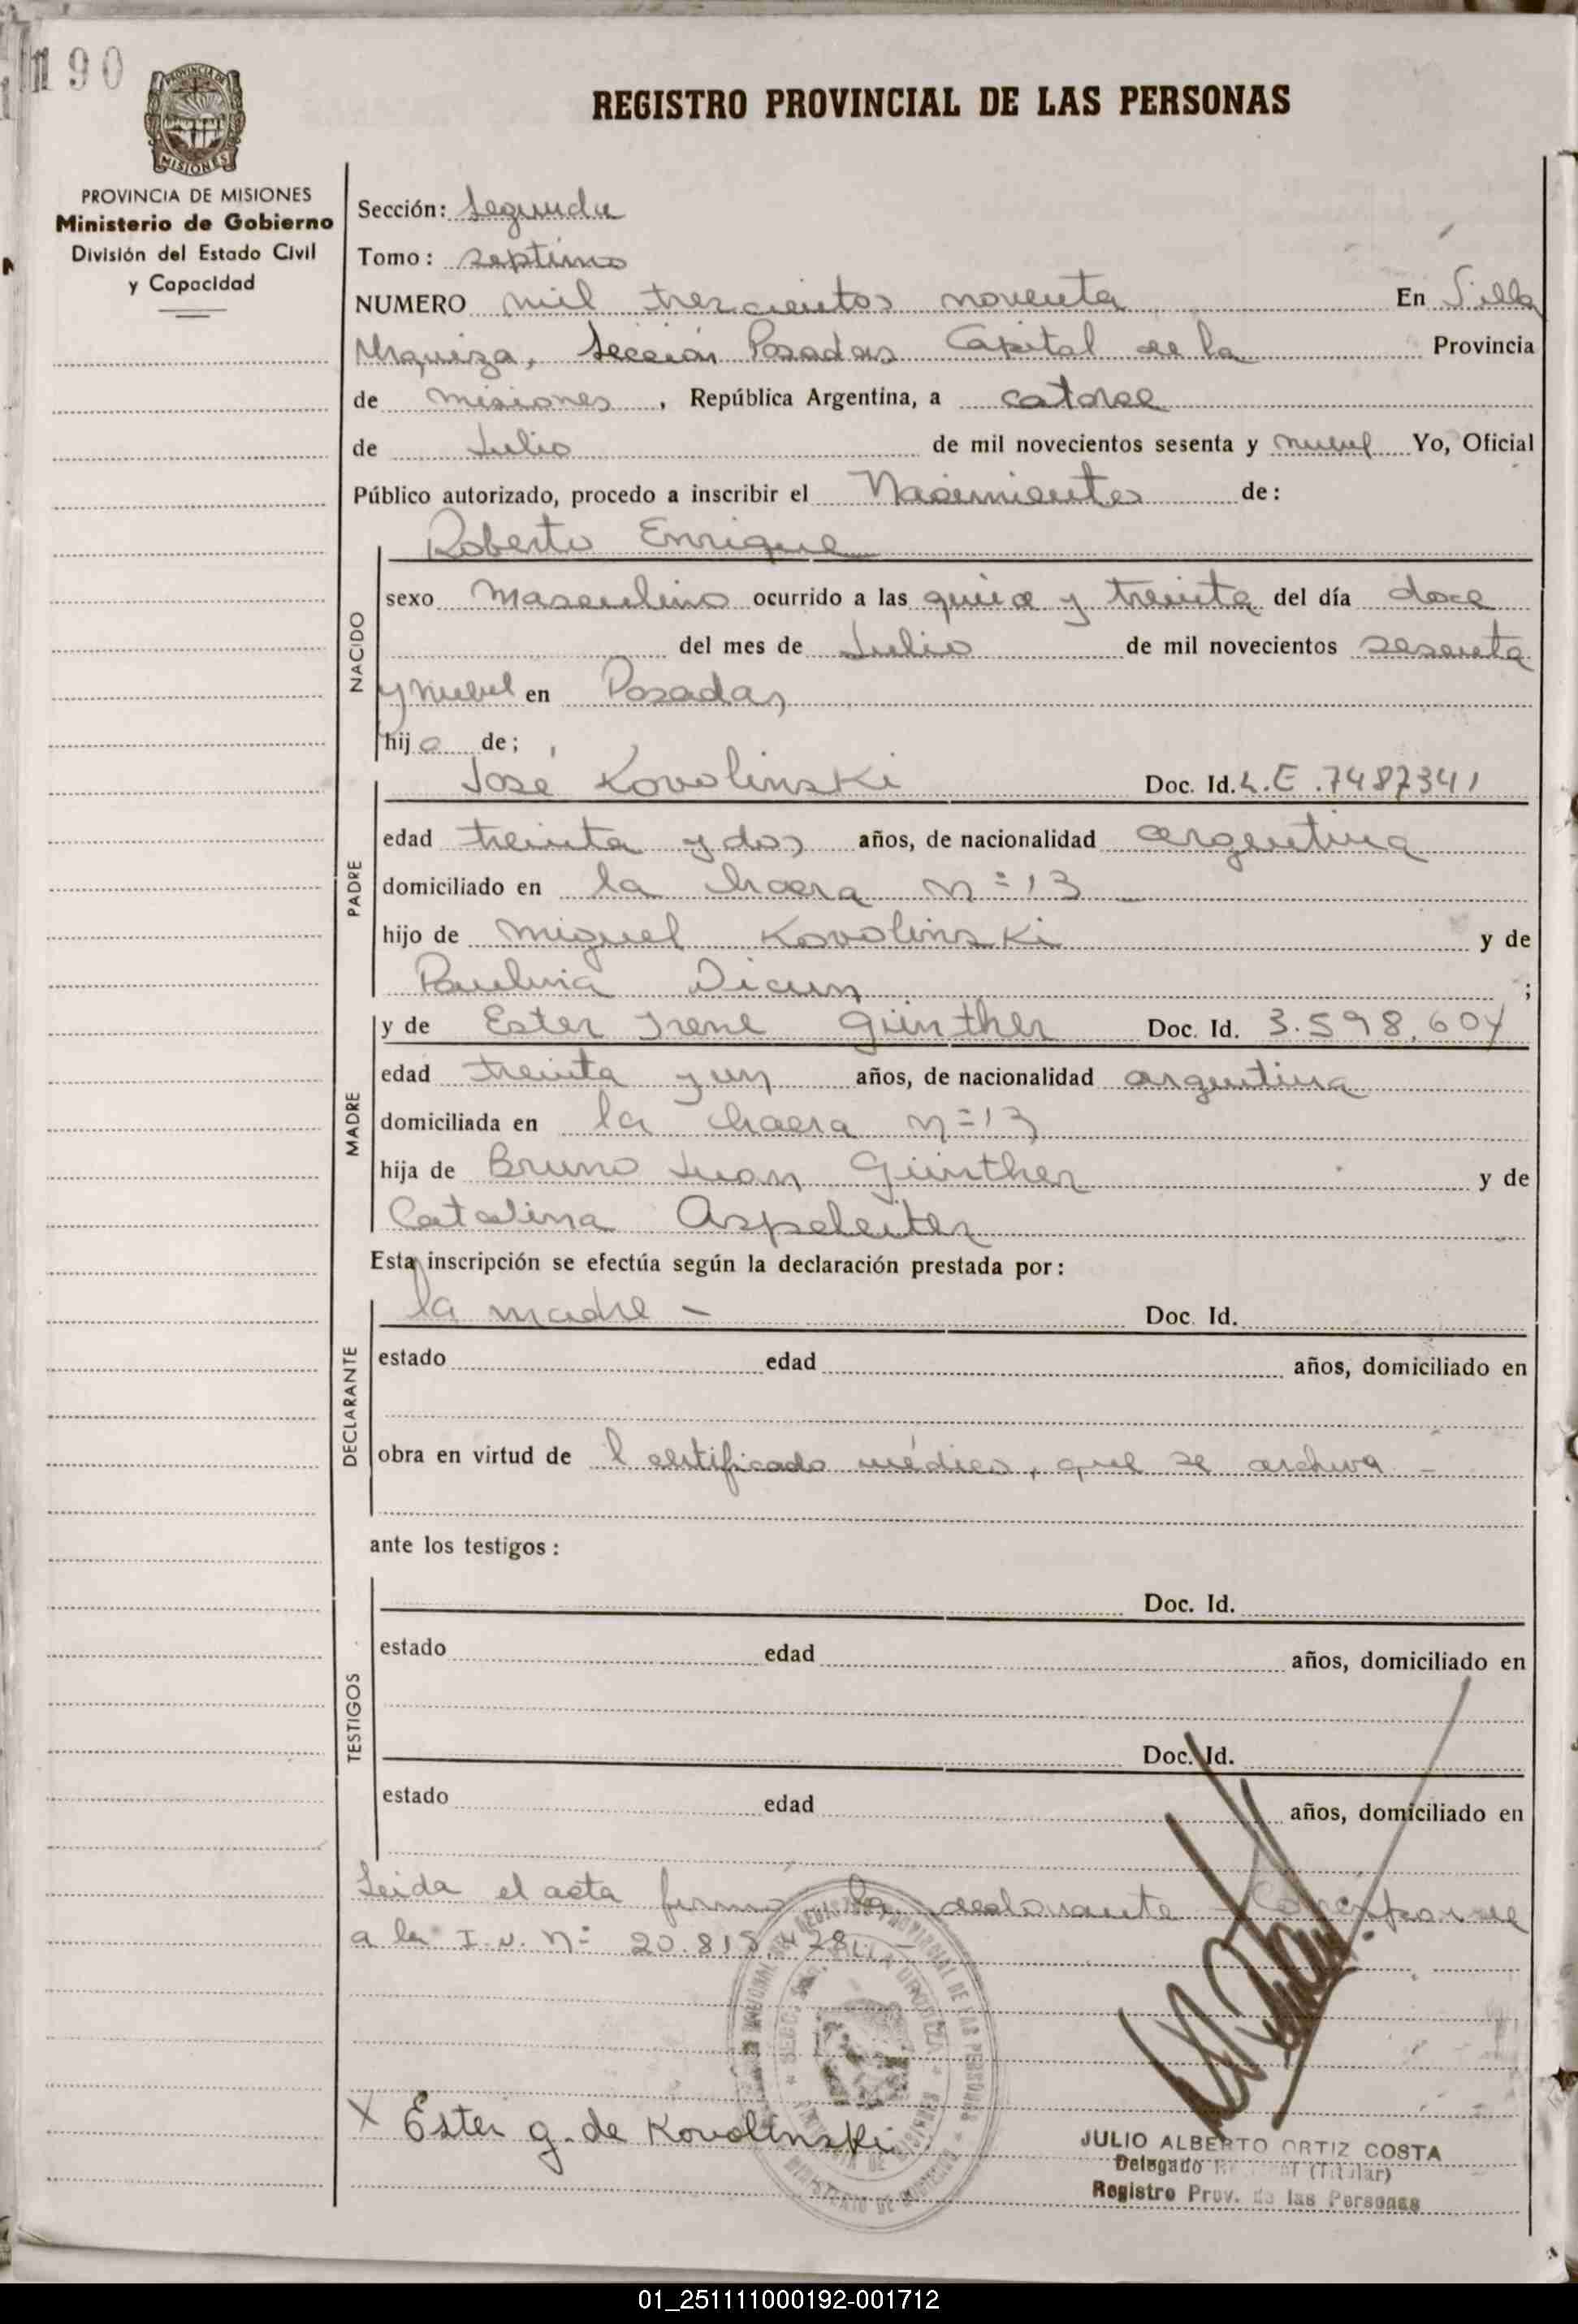 190
REGISTRO PROVINCIAL DE LAS PERSONAS
PROVINCIA DE MISIONES
MISIONES
PROVINCIA DE MISIONES
Ministerio de Gobierno
División del Estado Civil
y Capacidad
Sección: Segunda
Tomo: septimo
NUMERO mil trescientos noventa En Villa
Urquiza, Sección Posadas Capital de la Provincia
de Misiones, República Argentina, a catorce
de Julio de mil novecientos sesenta y nueve Yo, Oficial
Público autorizado, procedo a inscribir el Nacimiento de:
NACIDO
Roberto Enrique
sexo masculino ocurrido a las quince y treinta del día doce
del mes de Julio de mil novecientos sesenta
y nueve en Posadas
hijo de;
PADRE
José Kovolinski Doc. Id. L.E. 7487341
edad treinta y dos años, de nacionalidad argentina
domiciliado en la chacra nº 13
hijo de Miguel Kovolinski y de
Paulina ;
MADRE
y de Ester Irene Günther Doc. Id. 3.598.604
edad treinta y un años, de nacionalidad argentina
domiciliada en la chacra nº 13
hija de Bruno Juan Günther y de
Catalina Aspeleiter
Esta inscripción se efectúa según la declaración prestada por:
DECLARANTE
la madre - Doc. Id.
estado edad años, domiciliado en
obra en virtud de l certificado médico, que se archiva -
ante los testigos:
TESTIGOS
Doc. Id.
estado edad años, domiciliado en
Doc. Id.
estado edad años, domiciliado en
Leida el acta firma la declarante
a la I.N. nº
X Ester G. de Kovolinski
JULIO ALBERTO ORTIZ COSTA
Delegado (Titular)
Registro Prov. de las Personas
01_251111000192-001712